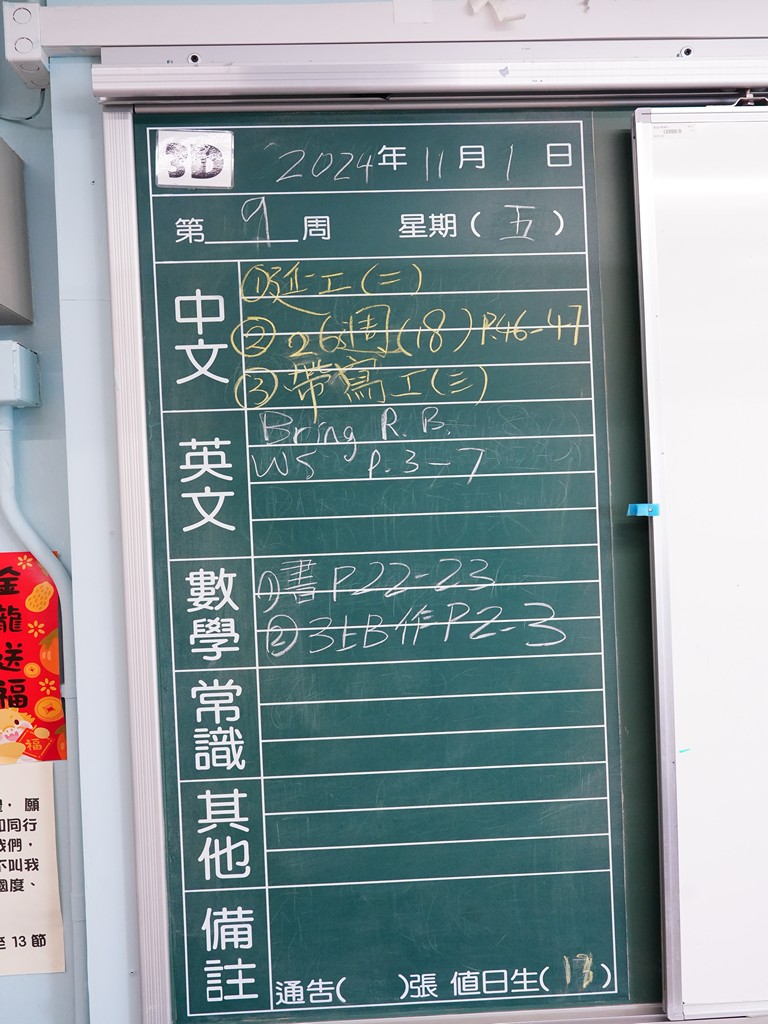 3D 2024年 11月 1日
第 9 周 星期(五)
中文
①延工(二)
② 26週(18)P.46-47
③帶寫工(三)
英文
Bring R.B.
WS P.3-7
數學
①書P22-23
②3上B作P2-3
常識
其他
備註
通告( )張 值日生(13)
金龍送福
福
願
同行
我們，
不叫我
國度、
至 13 節